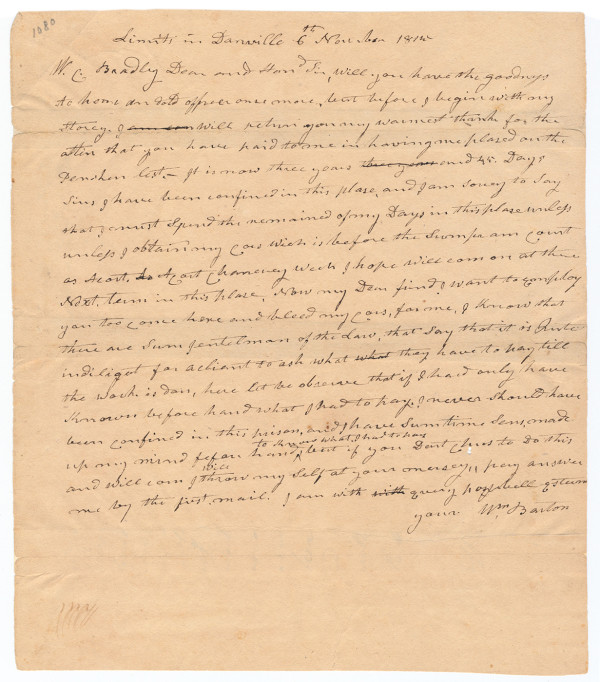 1080
Limits in Danville 6th November 1815
W. C. Bradly Dear and Hond Sir, will you have the goodness
to hear an old officer ones more, but before I begin with my
Storey, I am will return you my warmest thanks for the
atten that you have paid to me in having me plased on the
Penshon list. It is now three years and 45 Days
Sins I have been confined in this plase, and I am sorey to Say
that I must Spend the remained of my Days in this plase unless
unless I obtain my Cors wich is before the Supream Court
as Acort, to Acort Chancey wich I hope will com on at the
Next term in this place. Now my Dear frind I want to employ
you too come here and plead my Cors, for me, I Know that
there are Sum gentelman of the Law, that Say that it is Rute
indiligot for a Cliant to ask what what they have to pay till
the work is don, here let me observe that if I haid only have
Known before hand what I had to pay I never should have
been confined in this prison, and I have Sumtime Sens, made
up my mind to Know what I had to pay
before hand, but if you Dont Chus to do this
and will com I will throw my Self at your mersey, pray answer
me by the first mail. I am with with every possibell esteem
your Wm Barton